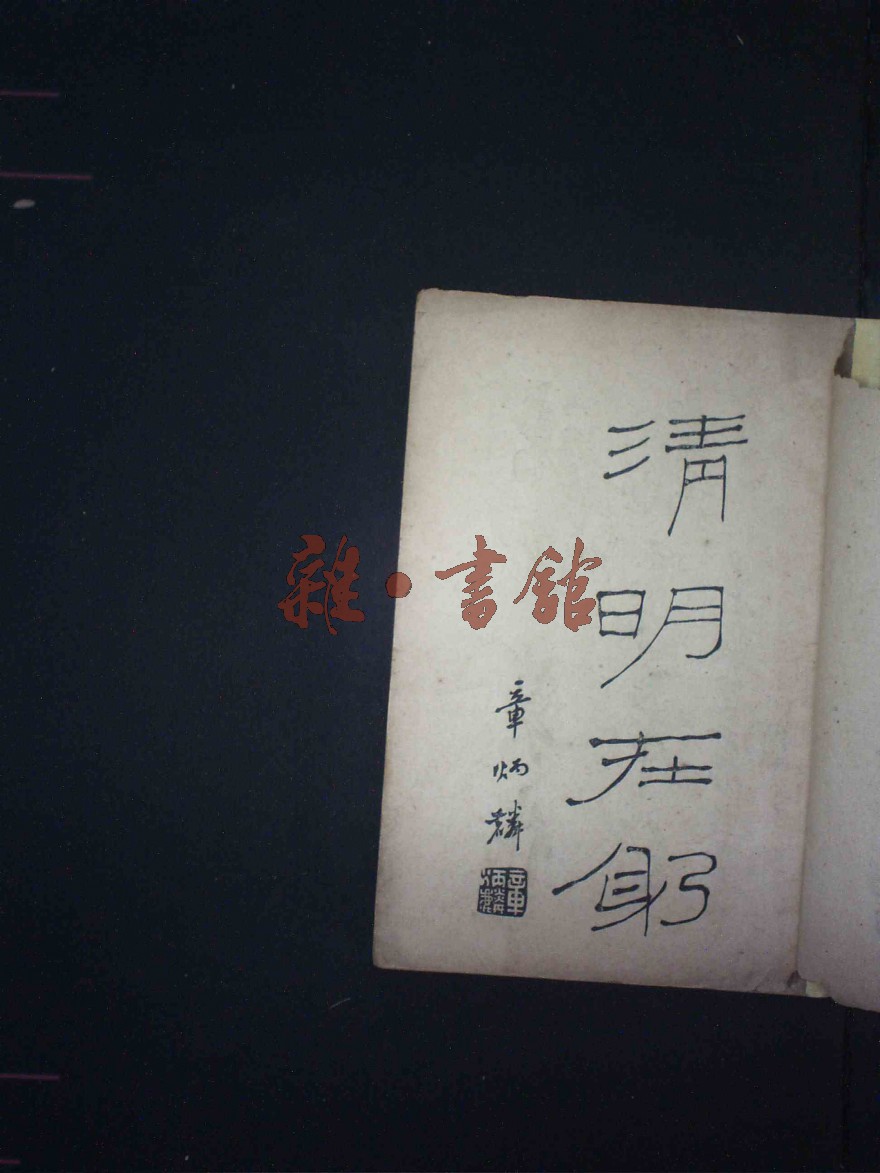 清明在躬
章炳麟
章炳麟
雜·書館